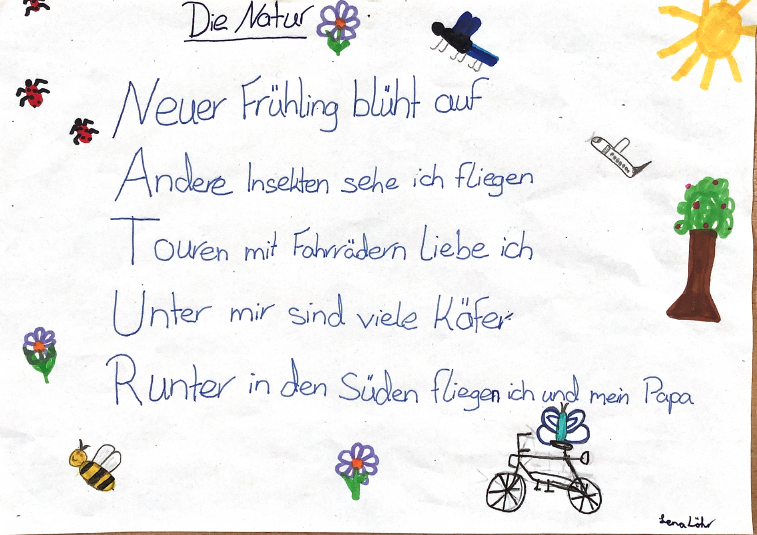 Die Natur
Neuer Frühling blüht auf
Andere Insekten sehe ich fliegen
Touren mit Fahrrädern Liebe ich
Unter mir sind viele Käfer
Runter in den Süden fliegen ich und mein Papa
Lena Löhr